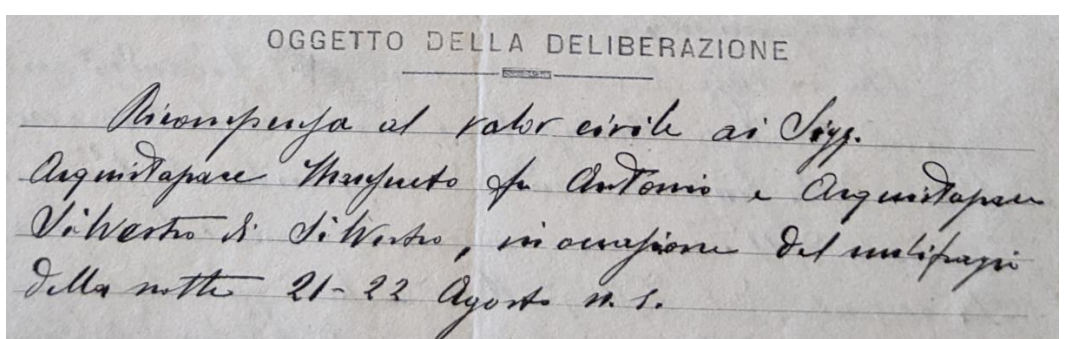 OGGETTO DELLA DELIBERAZIONE
Ricompensa al valor civile ai Sigg.
Acquistapace Mansueto fu Antonio e Acquistapace
Silvestro di Silvestro, in occasione del nubifragio
della notte 21-22 Agosto u. s.